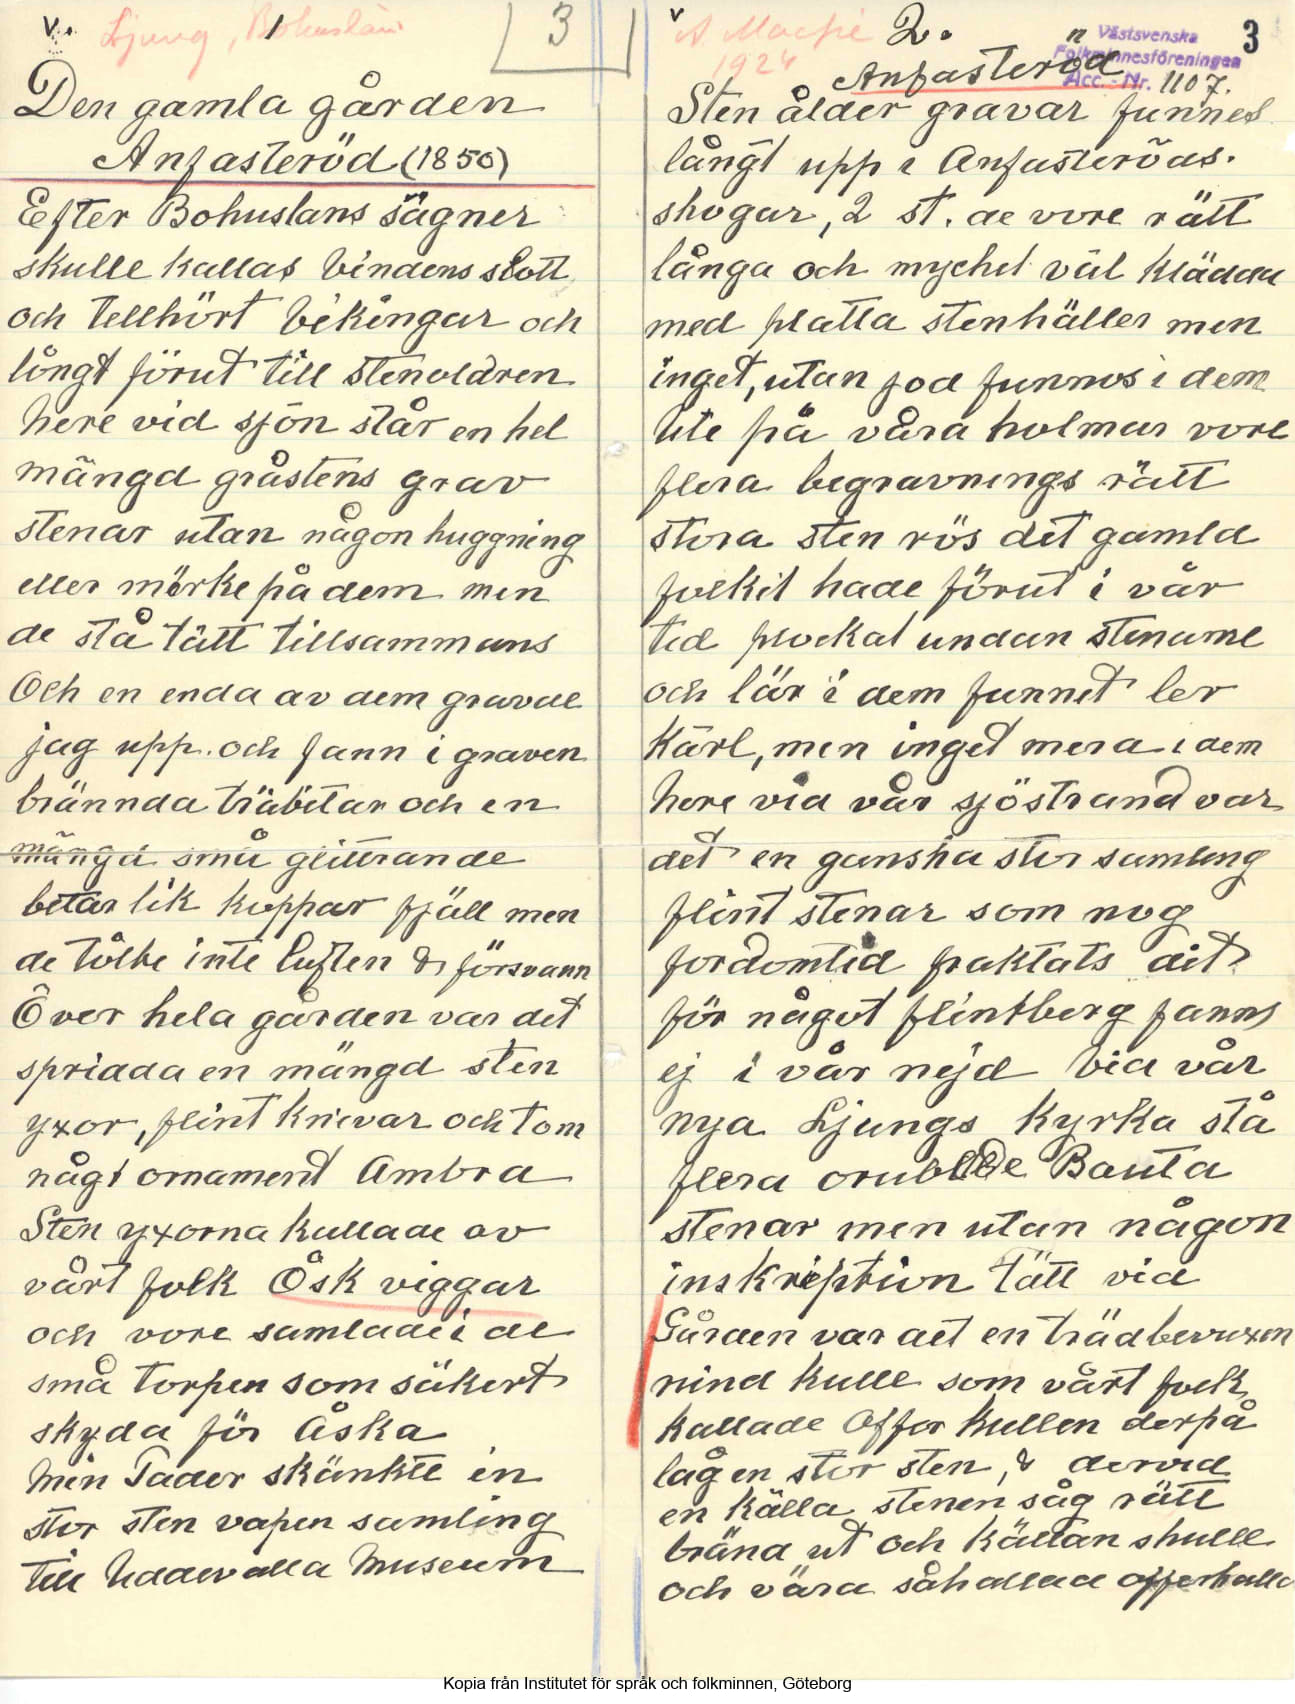 V. Ljung, Bohuslän
1
3
Den gamla gården
Anfasteröd (1850)
Efter Bohuslans sägner
skulle kallas Vindens slott
och tellhört Vikingar och
långt förut till stenoldren
here vid sjön står en hel
mängd gråstens grav
stenar utan någon huggning
eller märke på dem men
de stå tätt tillsammans
Och en enda av dem gravde
jag upp. och fann i graven
brännda träbitar och en
mängd små glittrande
betar lik koppar fjäll men
de tålte inte luften & försvann
Över hela gården var det
spridda en mängd sten
yxor, flint knivar och tom
någt ornament Ambra
Sten yxorna kallade av
vårt folk Åsk viggar
och vore samlade i de
små torpen som säkert
skyda för Åska
Min Fader skänkte en
stor sten vapen samling
till Uddevalla Museum
V A. Macfie
1924
2.
Anfasteröd
Västsvenska
Folkminnesföreningen
Acc.-Nr. 1107.
3
Sten ålder gravar funnes
långt upp i Anfasteröds.
skogar, 2 st. de vore rätt
långa och mychet väl klädda
med platta stenhäller men
inget, utan jod funnos i dem
Ute på våra holmar vore
flera begravnings rätt
stora sten rös det gamla
folkit hade förut i vår
tid plockat undan stenarne
och lär i dem funnet ler
Kärl, men inget mera i dem
here vid vår sjöstrand var
det en ganska stor samleng
flint stenar som nog
fordomtid fraktats dit
för något flintberg fanns
ej i vår nejd Vid vår
nya Ljungs Kyrka stå
flera orubbade Bauta
stenar men utan någon
inskription Tätt vid
Gården var det en trädbevuxen
rind kulle som vårt folk
kallade Offer kullen derpå
låg en stor sten, & dervid
en källa stenen såg rätt
bränd ut och Källan skulle
och vära såkallad offerkalla
Kopia från Institutet för språk och folkminnen, Göteborg